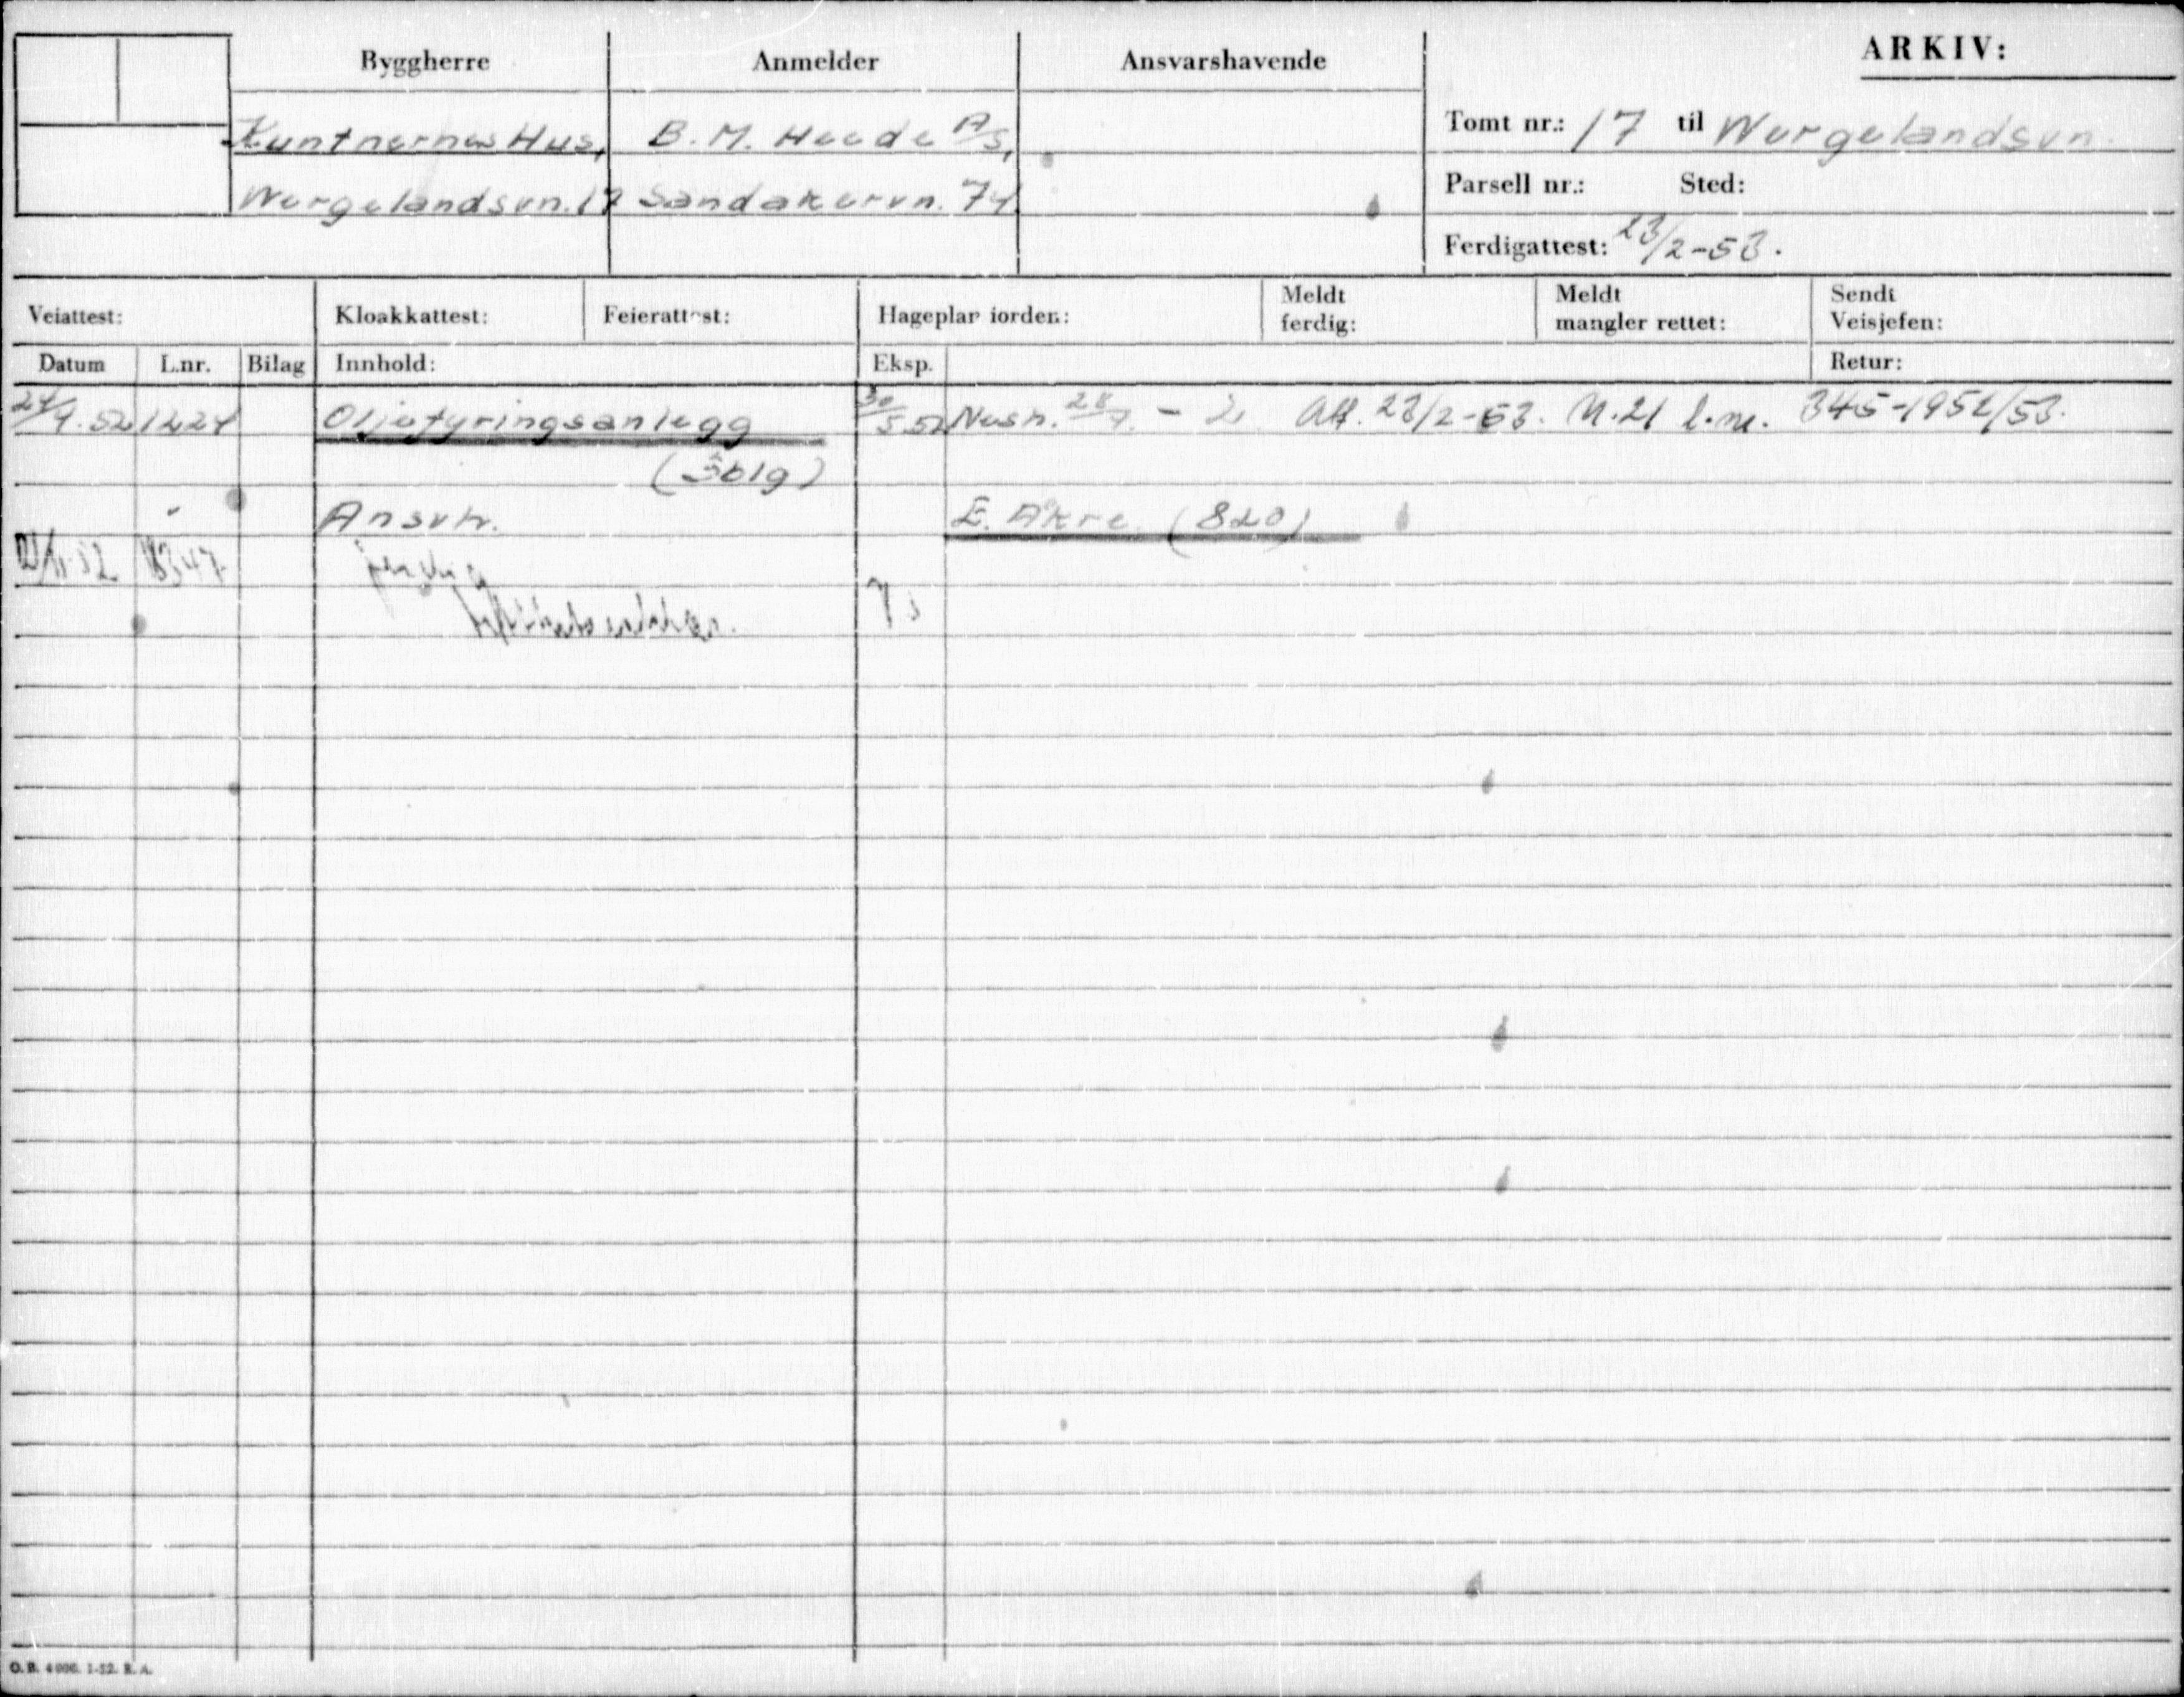 ARKIV:
Byggherre Anmelder Ansvarshavende
Kuntnernes Hus, B. M. Heede A/S,
Wergelandsvn. 17 Sandakervn. 74
Tomt nr.: 17 til Wergelandsvn.
Parsell nr.: Sted:
Ferdigattest: 23/2-53.
Veiattest: Kloakkattest: Feierattest: Hageplan iorden: Meldt ferdig: Meldt mangler rettet: Sendt Veisjefen:
Datum L.nr. Bilag Innhold: Eksp. Retur:
Oljefyringsanlegg Att. 23/2-53. M.21 l.nr. 345-1952/53.
Ansvh. E. Åkre (820)
ferdig
O.B. 4000. 1-52. R.A.